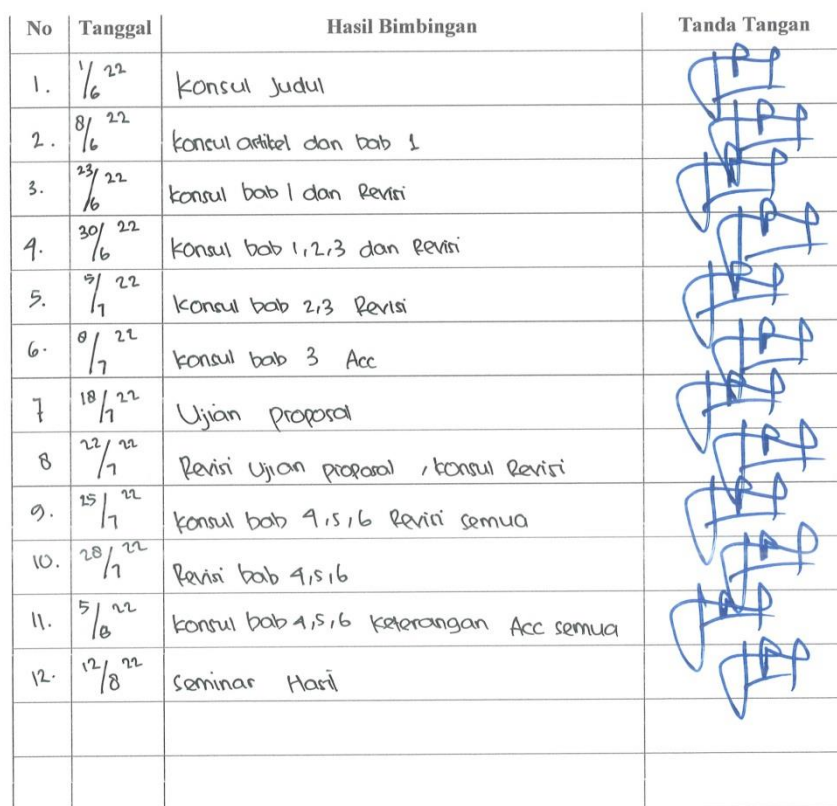 No Tanggal Hasil Bimbingan Tanda Tangan
1. 1/6 22 Konsul Judul
2. 8/6 22 Konsul artikel dan bab 1
3. 23/6 22 Konsul bab 1 dan Revisi
4. 30/6 22 Konsul bab 1,2,3 dan Revisi
5. 5/7 22 Konsul bab 2,3 Revisi
6. /7 22 Konsul bab 3 Acc
7 18/7 22 Ujian proposal
8 22/7 22 Revisi Ujian proposal , konsul Revisi
9. 25/7 22 Konsul bab 4,5,6 Revisi semua
10. 28/7 22 Revisi bab 4,5,6
11. 5/8 22 Konsul bab 4,5,6 Keterangan Acc semua
12. 12/8 22 Seminar Hasil